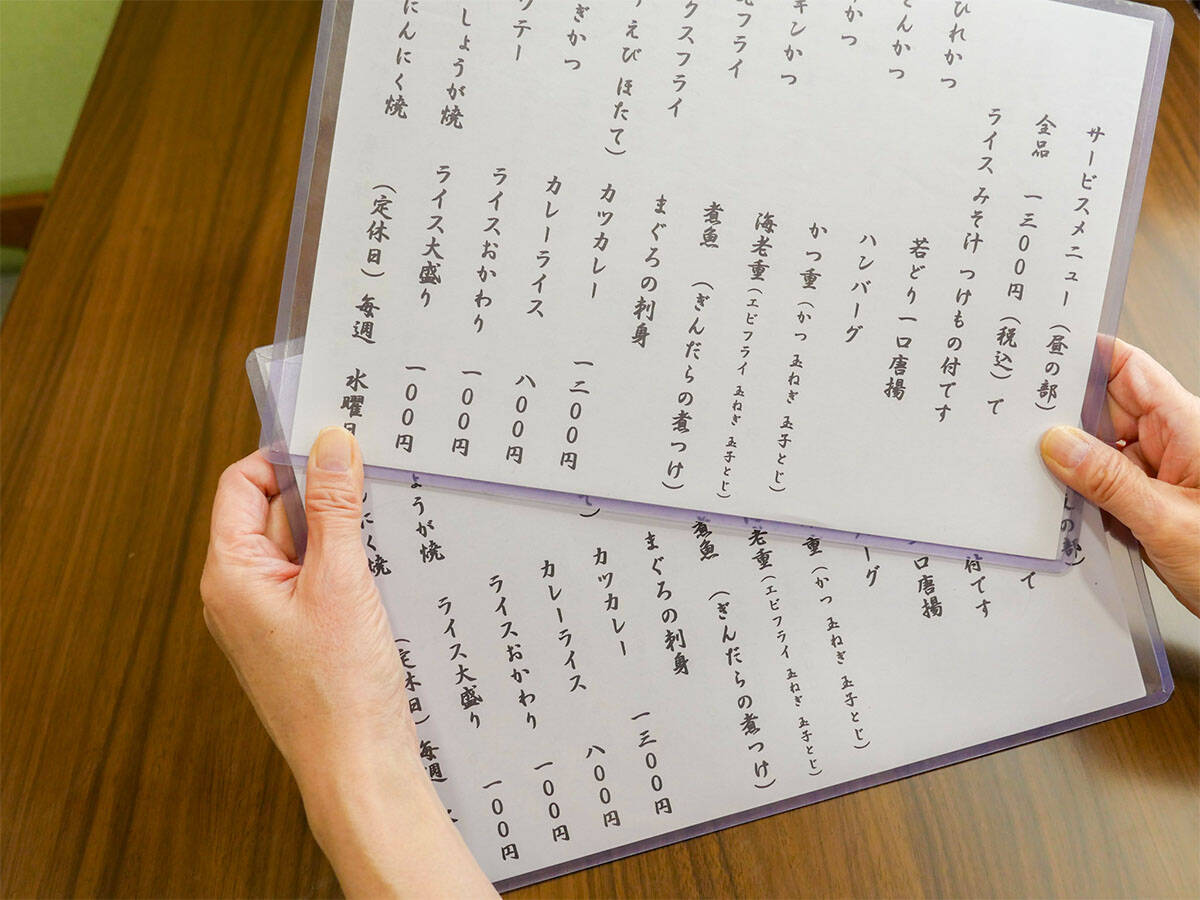 サービスメニュー（昼の部）
全品　一三００円（税込）で
ライス みそ汁 つけもの付です
ひれかつ
若どり一口唐揚
んかつ
ハンバーグ
かつ
かつ重（かつ 玉ねぎ 玉子とじ）
キンかつ
海老重（エビフライ 玉ねぎ 玉子とじ）
フライ
煮魚　（ぎんだらの煮つけ）
クスフライ
まぐろの刺身
えび ほたて）
カツカレー　一二００円
ぎかつ
カレーライス　八００円
ソテー
ライスおかわり　一００円
しょうが焼
ライス大盛り　一００円
にんにく焼
（定休日）毎週　水曜日
の部）
て
付です
口唐揚
ーグ
重（かつ 玉ねぎ 玉子とじ）
老重（エビフライ 玉ねぎ 玉子とじ）
煮魚　（ぎんだらの煮つけ）
まぐろの刺身
て）
カツカレー　一三００円
カレーライス　八００円
ライスおかわり　一００円
ょうが焼
ライス大盛り　一００円
にく焼
（定休日）毎週